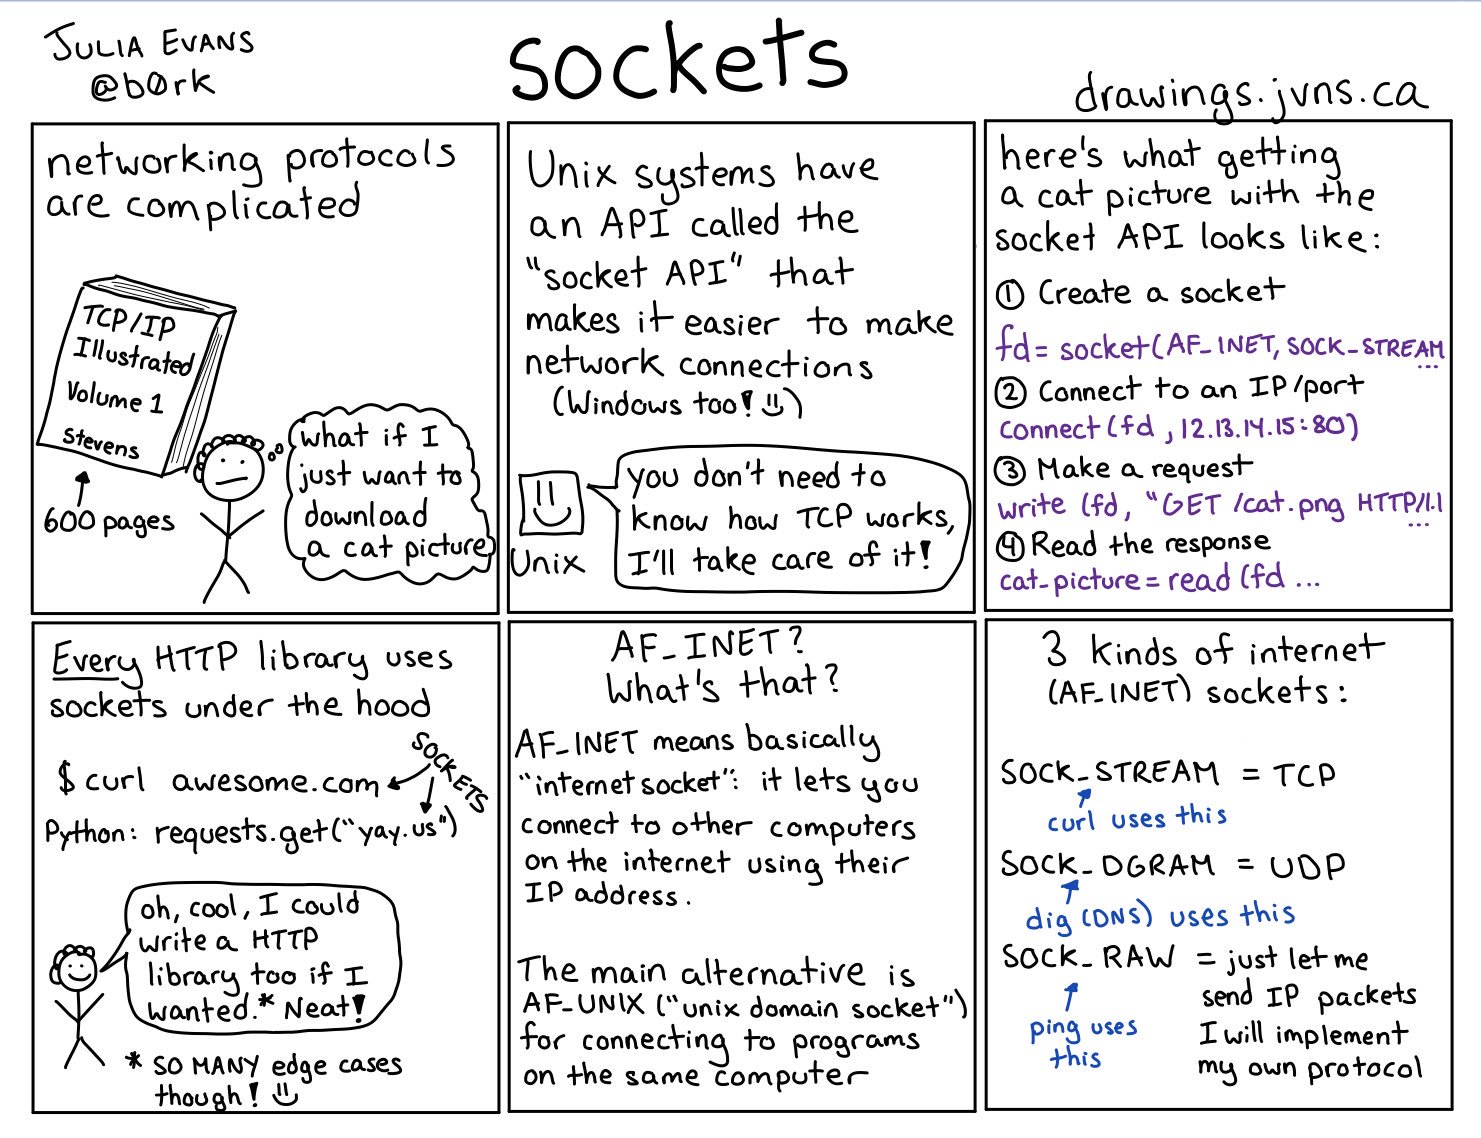 JULIA EVANS
@b0rk
sockets
drawings.jvns.ca
networking protocols
are complicated
TCP/IP
Illustrated
Volume 1
Stevens
600 pages
what if I
just want to
download
a cat picture
Unix systems have
an API called the
"socket API" that
makes it easier to make
network connections
(Windows too! )
you don't need to
know how TCP works,
I'll take care of it!
Unix
here's what getting
a cat picture with the
socket API looks like:
① Create a socket
fd = socket(AF_INET, SOCK_STREAM
...
② Connect to an IP/port
connect(fd, 12.13.14.15:80)
③ Make a request
write (fd, "GET /cat.png HTTP/1.1
...
④ Read the response
cat_picture = read (fd ...
Every HTTP library uses
sockets under the hood
$ curl awesome.com
SOCKETS
Python: requests.get("yay.us")
oh, cool, I could
write a HTTP
library too if I
wanted.* Neat!
* SO MANY edge cases
though!
AF_INET?
What's that?
AF_INET means basically
"internet socket": it lets you
connect to other computers
on the internet using their
IP address.
The main alternative is
AF_UNIX ("unix domain socket")
for connecting to programs
on the same computer
3 kinds of internet
(AF_INET) sockets:
SOCK_STREAM = TCP
curl uses this
SOCK_DGRAM = UDP
dig (DNS) uses this
SOCK_RAW = just let me
send IP packets
I will implement
my own protocol
ping uses
this